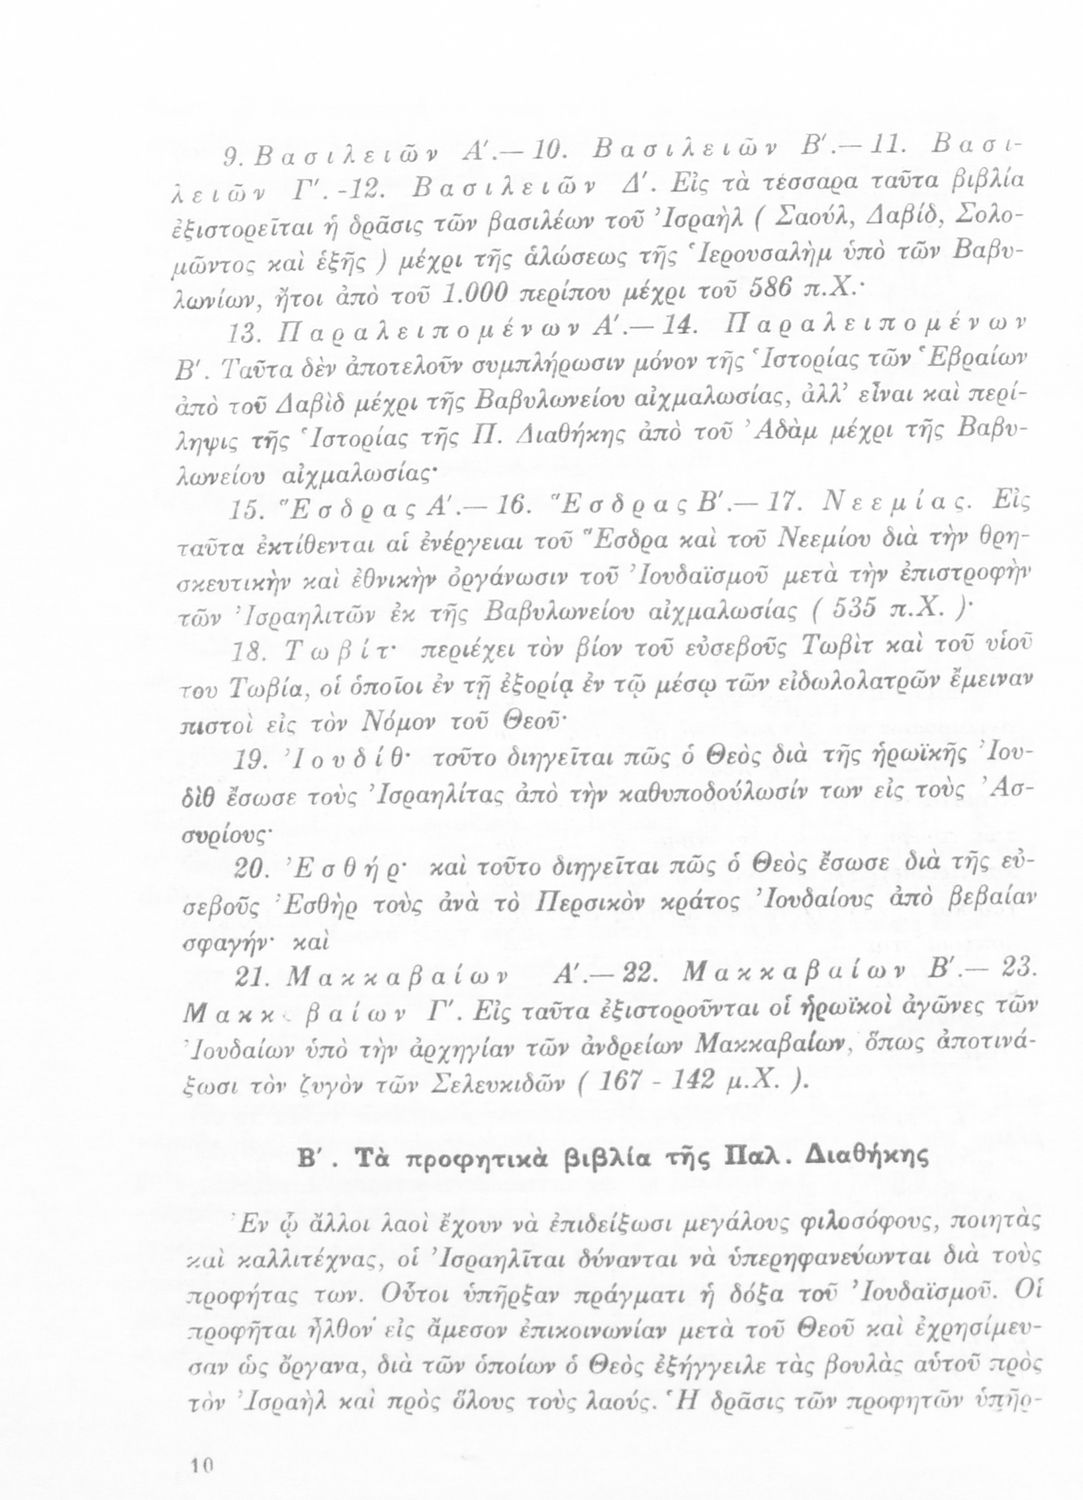 9. Βασιλειῶν Α′.— 10. Βασιλειῶν Β′.— 11. Βασι-
λειῶν Γ′. -12. Βασιλειῶν Δ′. Εἰς τὰ τέσσαρα ταῦτα βιβλία
ἐξιστορεῖται ἡ δρᾶσις τῶν βασιλέων τοῦ Ἰσραὴλ ( Σαούλ, Δαβίδ, Σολο-
μῶντος καὶ ἑξῆς ) μέχρι τῆς ἁλώσεως τῆς Ἱερουσαλὴμ ὑπὸ τῶν Βαβυ-
λωνίων, ἤτοι ἀπὸ τοῦ 1.000 περίπου μέχρι τοῦ 586 π.Χ.·
13. Παραλειπομένων Α′.— 14. Παραλειπομένων
Β′. Ταῦτα δὲν ἀποτελοῦν συμπλήρωσιν μόνον τῆς Ἱστορίας τῶν Ἑβραίων
ἀπὸ τοῦ Δαβὶδ μέχρι τῆς Βαβυλωνείου αἰχμαλωσίας, ἀλλ’ εἶναι καὶ περί-
ληψις τῆς Ἱστορίας τῆς Π. Διαθήκης ἀπὸ τοῦ Ἀδὰμ μέχρι τῆς Βαβυ-
λωνείου αἰχμαλωσίας·
15. Ἔσδρας Α′.— 16. Ἔσδρας Β′.— 17. Νεεμίας. Εἰς
ταῦτα ἐκτίθενται αἱ ἐνέργειαι τοῦ Ἔσδρα καὶ τοῦ Νεεμίου διὰ τὴν θρη-
σκευτικὴν καὶ ἐθνικὴν ὀργάνωσιν τοῦ Ἰουδαϊσμοῦ μετὰ τὴν ἐπιστροφὴν
τῶν Ἰσραηλιτῶν ἐκ τῆς Βαβυλωνείου αἰχμαλωσίας ( 535 π.Χ. )·
18. Τωβίτ· περιέχει τὸν βίον τοῦ εὐσεβοῦς Τωβὶτ καὶ τοῦ υἱοῦ
του Τωβία, οἱ ὁποῖοι ἐν τῇ ἐξορίᾳ ἐν τῷ μέσῳ τῶν εἰδωλολατρῶν ἔμειναν
πιστοὶ εἰς τὸν Νόμον τοῦ Θεοῦ·
19. Ἰουδίθ· τοῦτο διηγεῖται πῶς ὁ Θεὸς διὰ τῆς ἡρωϊκῆς Ἰου-
δὶθ ἔσωσε τοὺς Ἰσραηλίτας ἀπὸ τὴν καθυποδούλωσίν των εἰς τοὺς Ἀσ-
συρίους·
20. Ἐσθήρ· καὶ τοῦτο διηγεῖται πῶς ὁ Θεὸς ἔσωσε διὰ τῆς εὐ-
σεβοῦς Ἐσθὴρ τοὺς ἀνὰ τὸ Περσικὸν κράτος Ἰουδαίους ἀπὸ βεβαίαν
σφαγήν· καὶ
21. Μακκαβαίων Α′.— 22. Μακκαβαίων Β′.— 23.
Μακκαβαίων Γ′. Εἰς ταῦτα ἐξιστοροῦνται οἱ ἡρωϊκοὶ ἀγῶνες τῶν
Ἰουδαίων ὑπὸ τὴν ἀρχηγίαν τῶν ἀνδρείων Μακκαβαίων, ὅπως ἀποτινά-
ξωσι τὸν ζυγὸν τῶν Σελευκιδῶν ( 167 - 142 μ.Χ. ).
Β′. Τὰ προφητικὰ βιβλία τῆς Παλ. Διαθήκης
Ἐν ᾧ ἄλλοι λαοὶ ἔχουν νὰ ἐπιδείξωσι μεγάλους φιλοσόφους, ποιητὰς
καὶ καλλιτέχνας, οἱ Ἰσραηλῖται δύνανται νὰ ὑπερηφανεύωνται διὰ τοὺς
προφήτας των. Οὗτοι ὑπῆρξαν πράγματι ἡ δόξα τοῦ Ἰουδαϊσμοῦ. Οἱ
προφῆται ἦλθον εἰς ἄμεσον ἐπικοινωνίαν μετὰ τοῦ Θεοῦ καὶ ἐχρησίμευ-
σαν ὡς ὄργανα, διὰ τῶν ὁποίων ὁ Θεὸς ἐξήγγειλε τὰς βουλὰς αὐτοῦ πρὸς
τὸν Ἰσραὴλ καὶ πρὸς ὅλους τοὺς λαούς. Ἡ δρᾶσις τῶν προφητῶν ὑπῆρ-
10